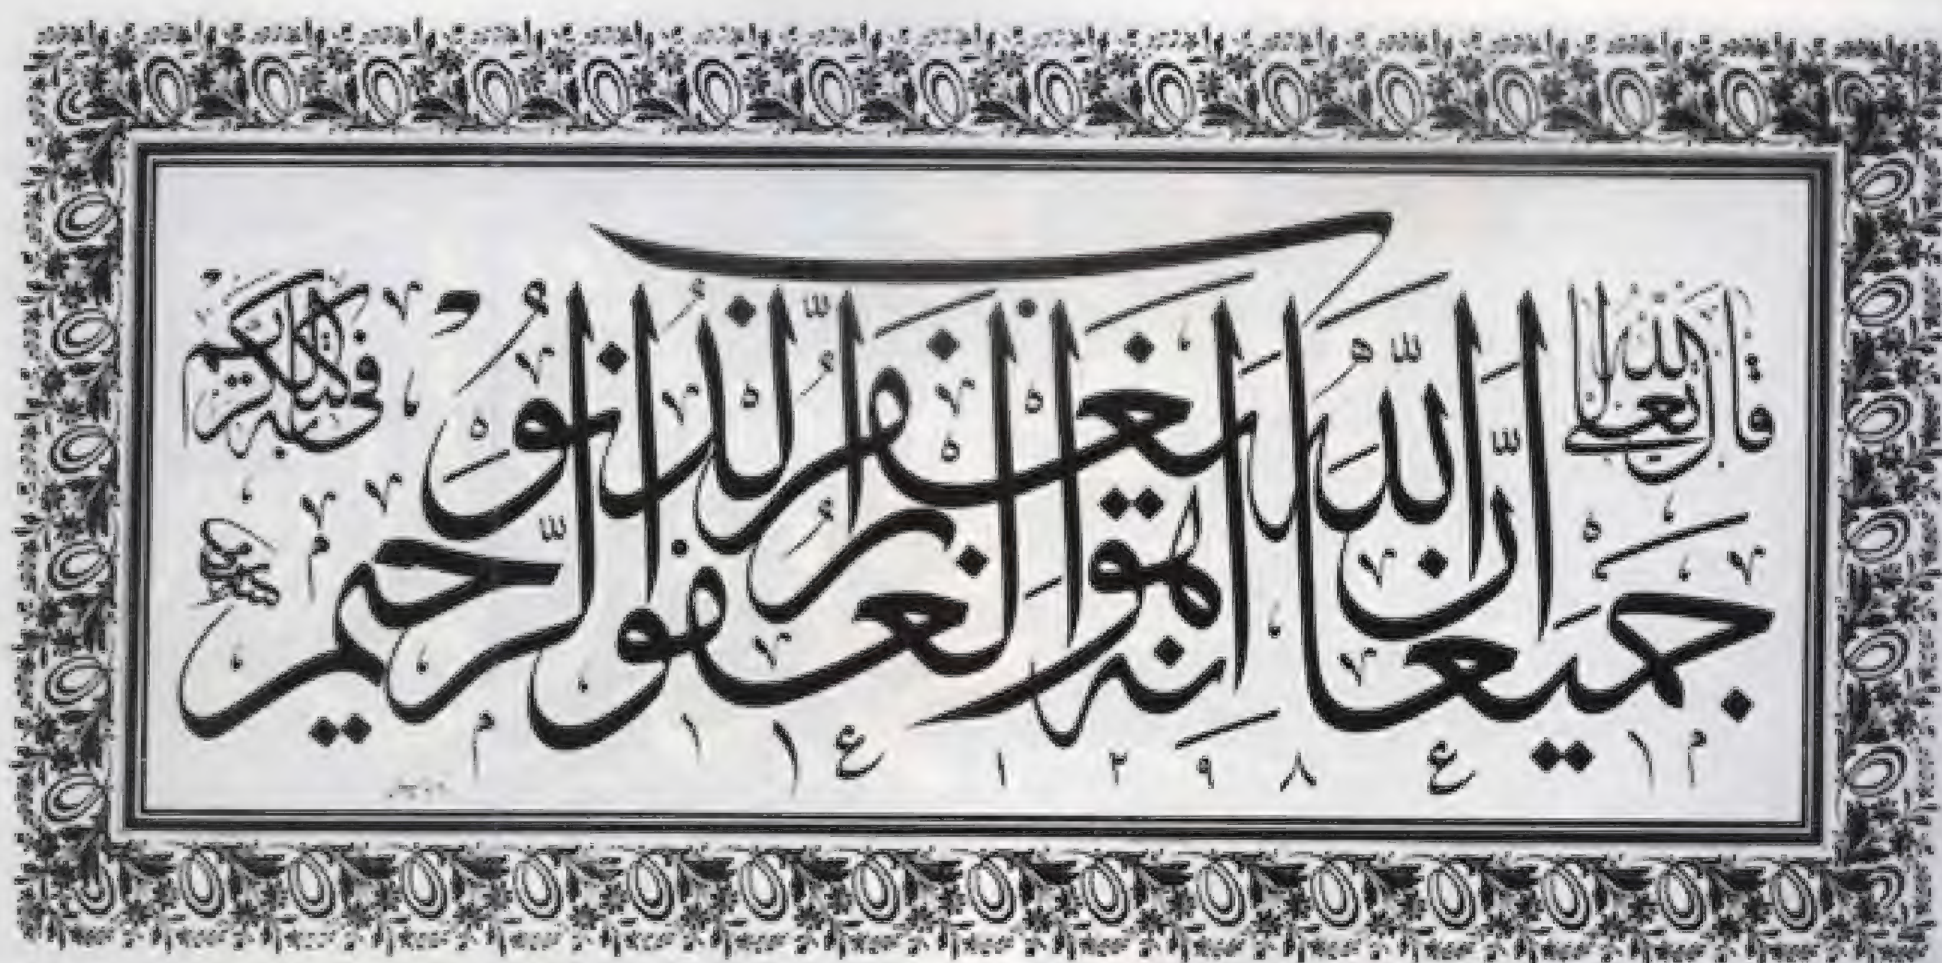 قال الله تعالى
في كتابه الكريم
ان الله يغفر الذنوب
جميعا انه هو الغفور الرحيم
١٢٩٨